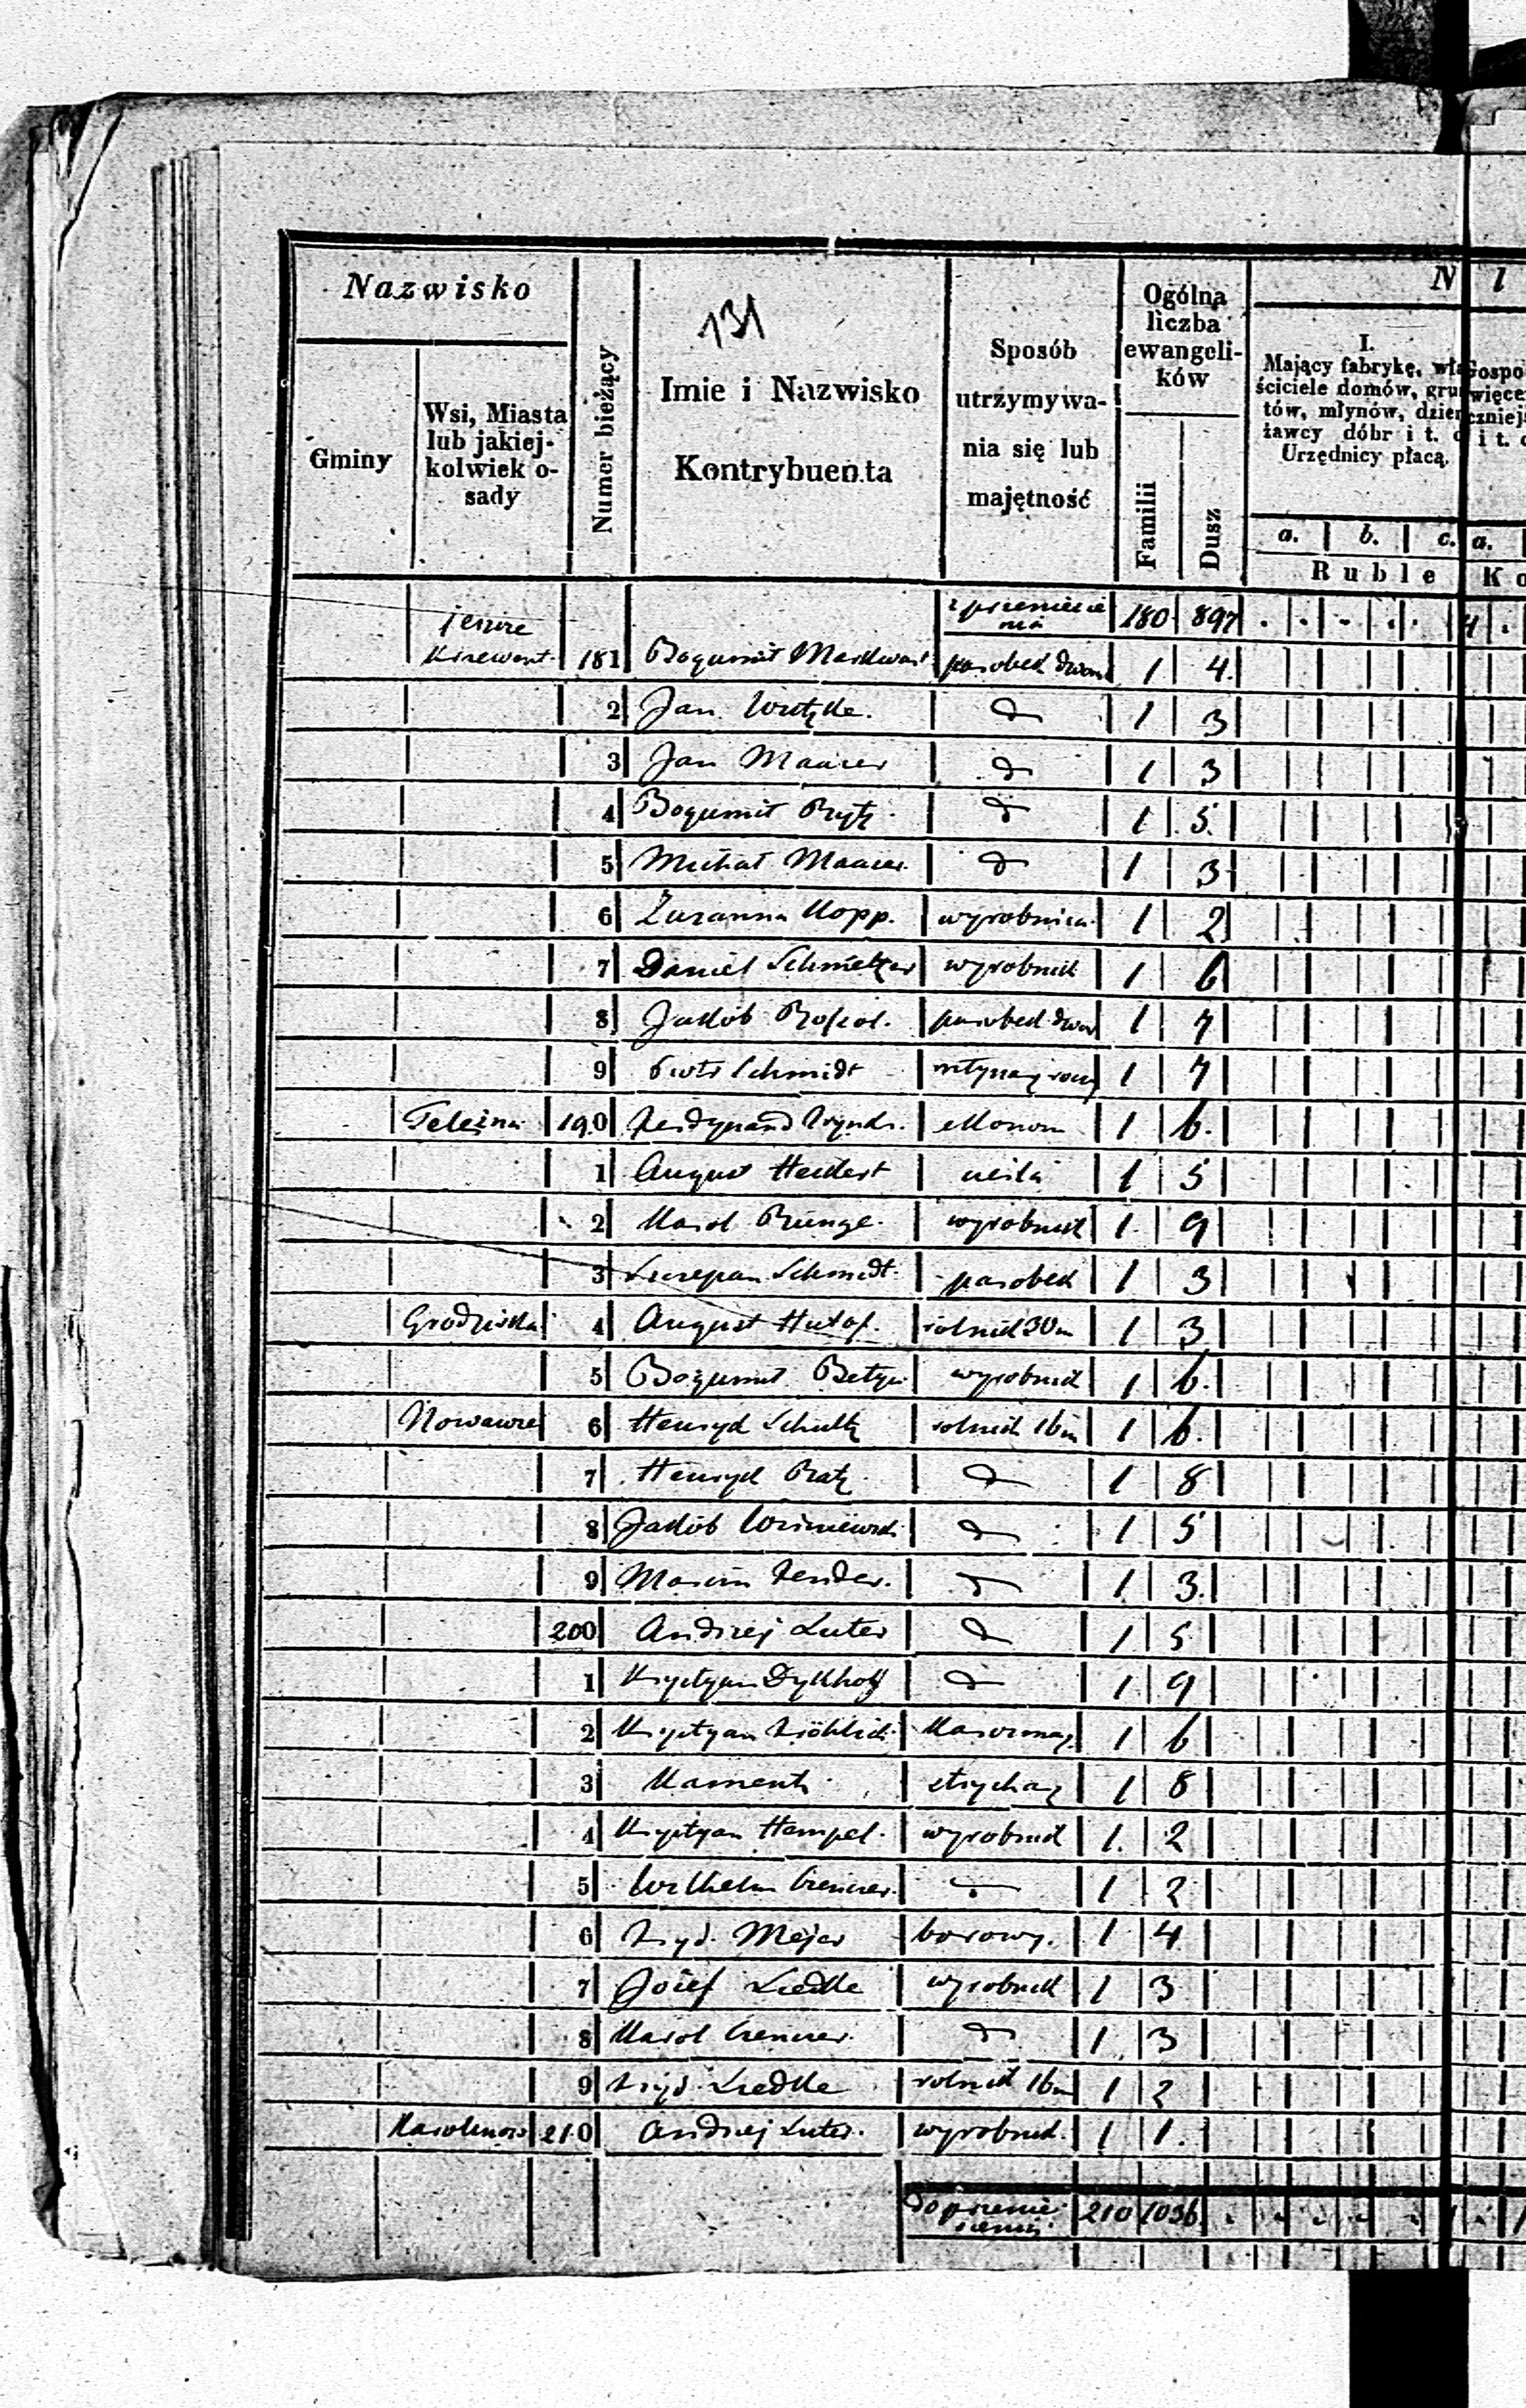 131
Nazwisko
Gminy
Wsi, Miasta
lub jakiej-
kolwiek o-
sady
Numer bieżący
Imie i Nazwisko
Kontrybuenta
Sposób
utrzymywa-
nia się lub
majętność
Ogólna
liczba
ewangeli-
ków
Familii
Dusz
N l
I.
Mający fabrykę, wła
ściciele domów, grun
tów, młynów, dzier
żawcy dóbr i t. d
Urzędnicy płacą.
Gospo
więcej
czniej
i t. d
a. b. c. a.
Ruble Ko
z przeniesie
nia 180 897 4
jeszcze
181 Bogumił Markwart parobek dwor 1 4
2 Jan Wutzke. d 1 3
3 Jan Maurer d 1 3
4 Bogumił Rytz d 1 5.
5 Michał Maurer d 1 3
6 Zuzanna Kopp. wyrobnica 1 2
7 Daniel Schmeltzer wyrobnik 1 6
8 Jakób parobek dwor 1 7
9 Piotr Schmidt 1 7
190 Ferdynand ekonom 1 6.
1 August 1 5
2 Karol Runge wyrobnik 1 9
3 Szczepan Schmidt parobek 1 3
Grodziska 4 August rolnik 30 m 1 3
5 Bogumił wyrobnik 1 6.
Nowawieś 6 Henryk Schultz rolnik 16 m 1 6.
7 Henryk Ratz d 1 8
8 Jakób Wiśniewski d 1 5
9 Marcin d 1 3.
200 Andrzej Luter d 1 5
1 Krystyan Dykhoff d 1 9
2 Krystyan Fröhlich Karczmarz 1 6
3 strycharz 1 8
4 Krystyan Hempel wyrobnik 1 2
5 Wilhelm 1 2
6 Fryd. Mejer borowy. 1 4
7 Józef Liedke wyrobnik 1 3
8 Karol d 1 3
9 Fryd. Liedke rolnik 16 m 1 2
Karolinow 210 Andrzej Luter. wyrobnik. 1 1.
Do przenie-
sienia 210 1036